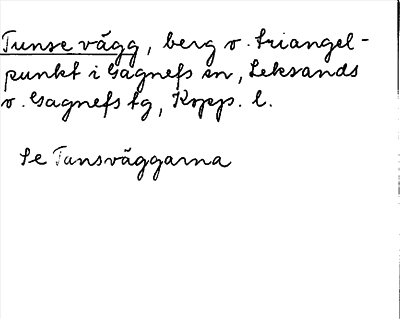 Tunse vägg, berg o. triangel-
punkt i Gagnefs sn, Leksands
o. Gagnefs tg, Kopp. l.
Se Tunsväggarna